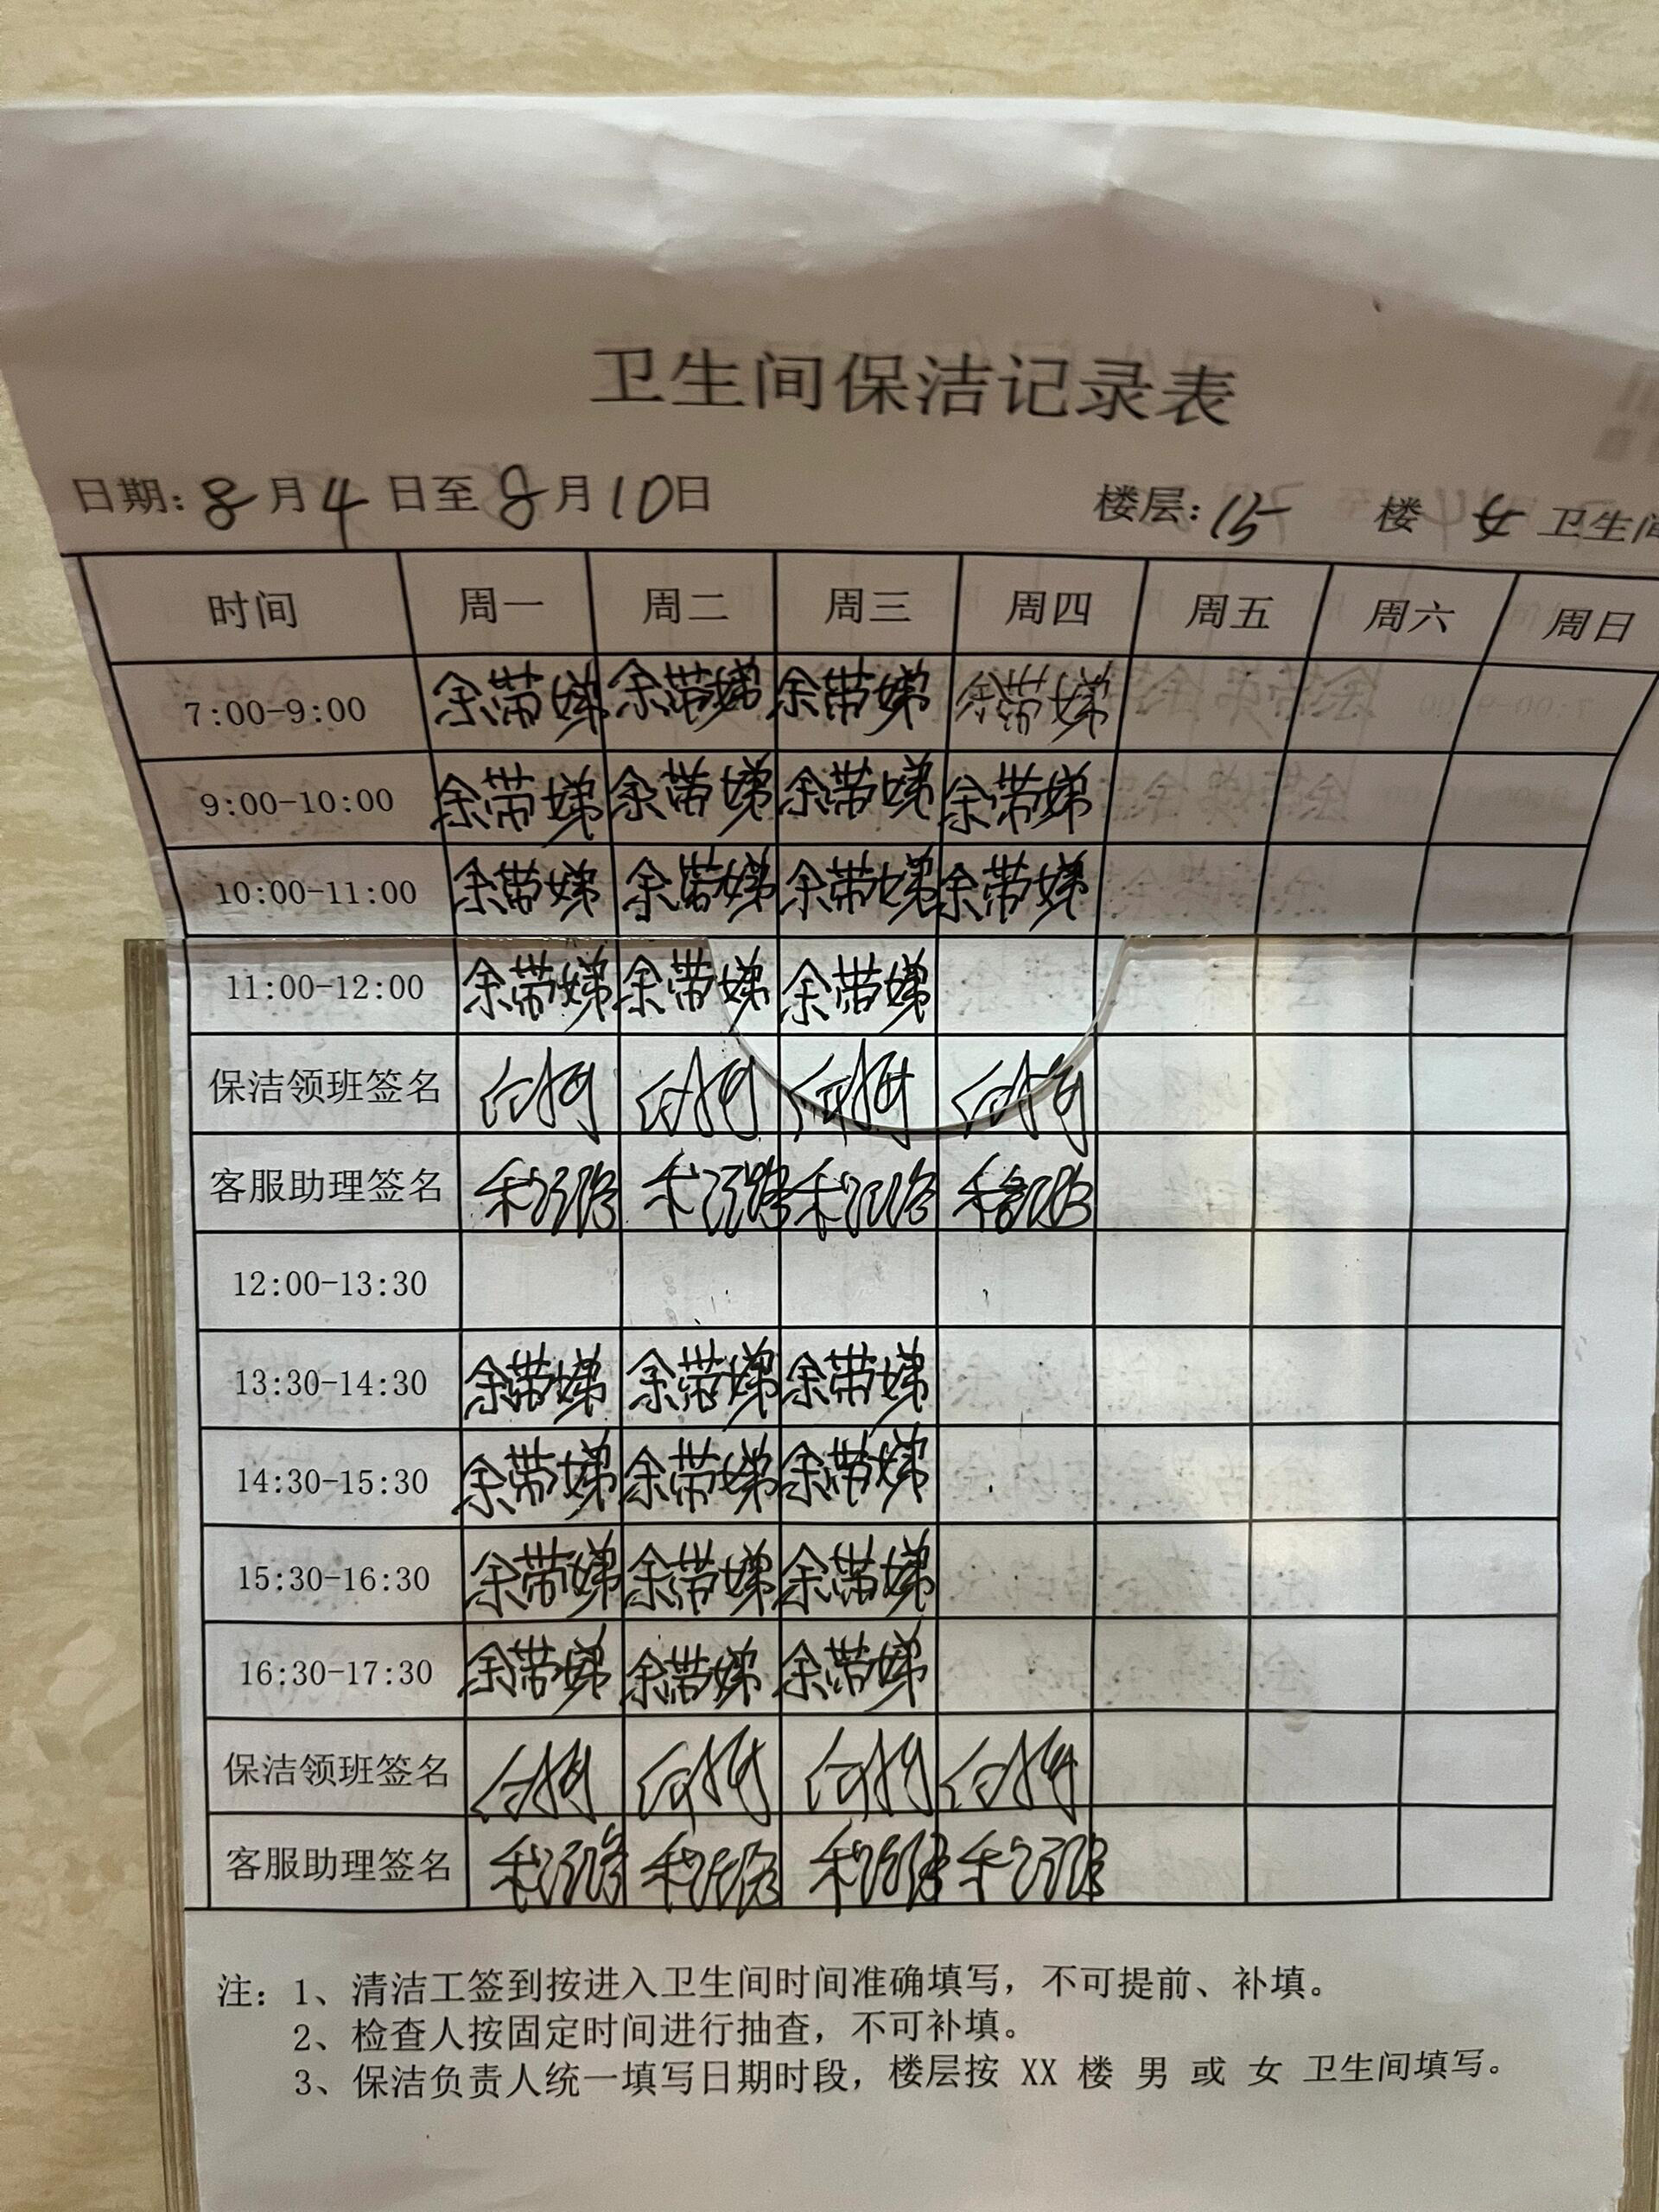 卫生间保洁记录表
日期：8月4日至8月10日 楼层：15 楼 女 卫生间
时间 周一 周二 周三 周四 周五 周六 周日
7:00-9:00 余带娣 余带娣 余带娣 余带娣
9:00-10:00 余带娣 余带娣 余带娣 余带娣
10:00-11:00 余带娣 余带娣 余带娣 余带娣
11:00-12:00 余带娣 余带娣 余带娣
保洁领班签名
客服助理签名
12:00-13:30
13:30-14:30 余带娣 余带娣 余带娣
14:30-15:30 余带娣 余带娣 余带娣
15:30-16:30 余带娣 余带娣 余带娣
16:30-17:30 余带娣 余带娣 余带娣
保洁领班签名
客服助理签名
注：1、清洁工签到按进入卫生间时间准确填写，不可提前、补填。
2、检查人按固定时间进行抽查，不可补填。
3、保洁负责人统一填写日期时段，楼层按 XX 楼 男 或 女 卫生间填写。